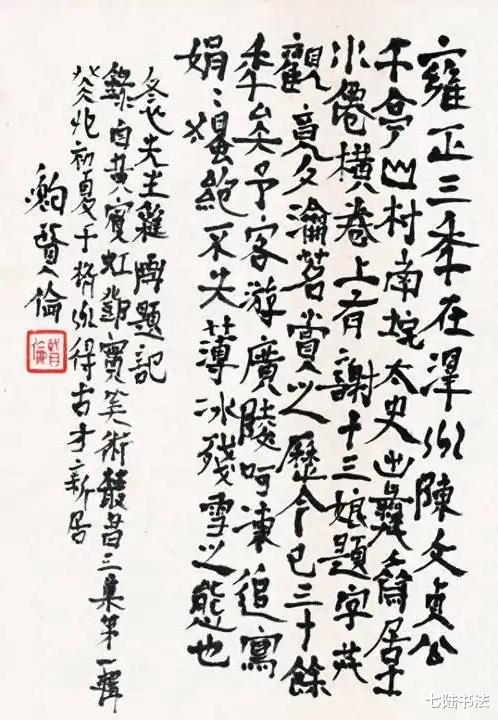 雍正三年在澤州陳文貞公
午亭山村南垞太史出彝齋居士
水僊橫卷上有謝十三娘題字共
觀竟夕瀹茗賞之歷今已三十餘
年矣予客游廣陵呵凍追寫
娟〻絕不失薄冰殘雪之態也
冬心先生雜畫題記
錄自黃賓虹鄧實美術叢書三集第一輯
癸初夏于杭州得古才新居
鮑賢倫
賢倫
七陆书法